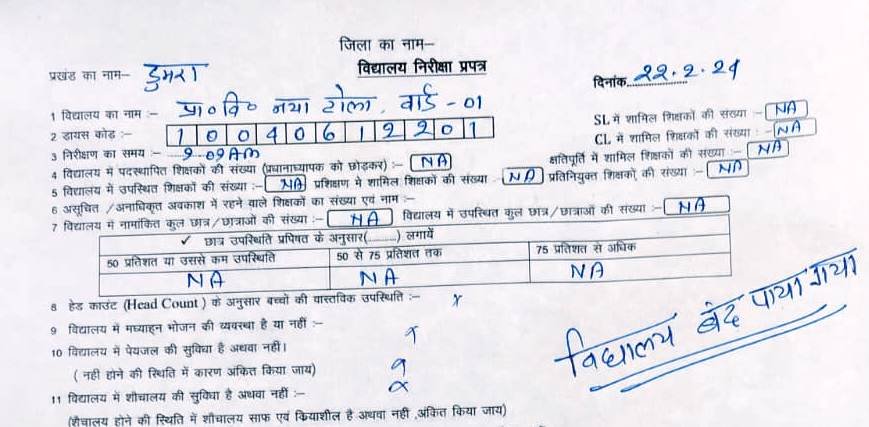 जिला का नाम–
प्रखंड का नाम– डुमरा
विद्यालय निरीक्षा प्रपत्र
दिनांक............ 22.2.24
1 विद्यालय का नाम :– प्रा० वि० नया टोला, वार्ड - 01
SL में शामिल शिक्षकों की संख्या :– NA
2 डायस कोड :– 10040612201
CL में शामिल शिक्षकों की संख्या : – NA
3 निरीक्षण का समय :– 9.09 AM
क्षतिपूर्ति में शामिल शिक्षकों की संख्या :– NA
4 विद्यालय में पदस्थापित शिक्षकों की संख्या (प्रधानाध्यापक को छोड़कर) :– NA
प्रतिनियुक्त शिक्षकों की संख्या :– NA
5 विद्यालय में उपस्थित शिक्षकों की संख्या :– NA प्रशिक्षण मे शामिल शिक्षकों की संख्या NA
6 असूचित / अनाधिकृत अवकाश में रहने वाले शिक्षकों का संख्या एवं नाम :–
7 विद्यालय में नामांकित कुल छात्र/छात्राओं की संख्या :– NA विद्यालय में उपस्थित कुल छात्र/छात्राओं की संख्या :– NA
✓ छात्र उपस्थिति प्रपिषत के अनुसार(..........) लगायें
50 प्रतिशत या उससे कम उपस्थिति 50 से 75 प्रतिशत तक 75 प्रतिशत से अधिक
NA NA NA
8 हेड काउंट (Head Count) के अनुसार बच्चों की वास्तविक उपस्थिति :– x
विद्यालय बंद पाया गया
9 विद्यालय में मध्याह्न भोजन की व्यवस्था है या नहीं :–
10 विद्यालय में पेयजल की सुविधा है अथवा नहीं।
( नही होने की स्थिति में कारण अंकित किया जाय)
11 विद्यालय में शौचालय की सुविधा है अथवा नहीं :–
(शौचालय होने की स्थिति में शौचालय साफ एवं कियाशील है अथवा नही ,अंकित किया जाय)